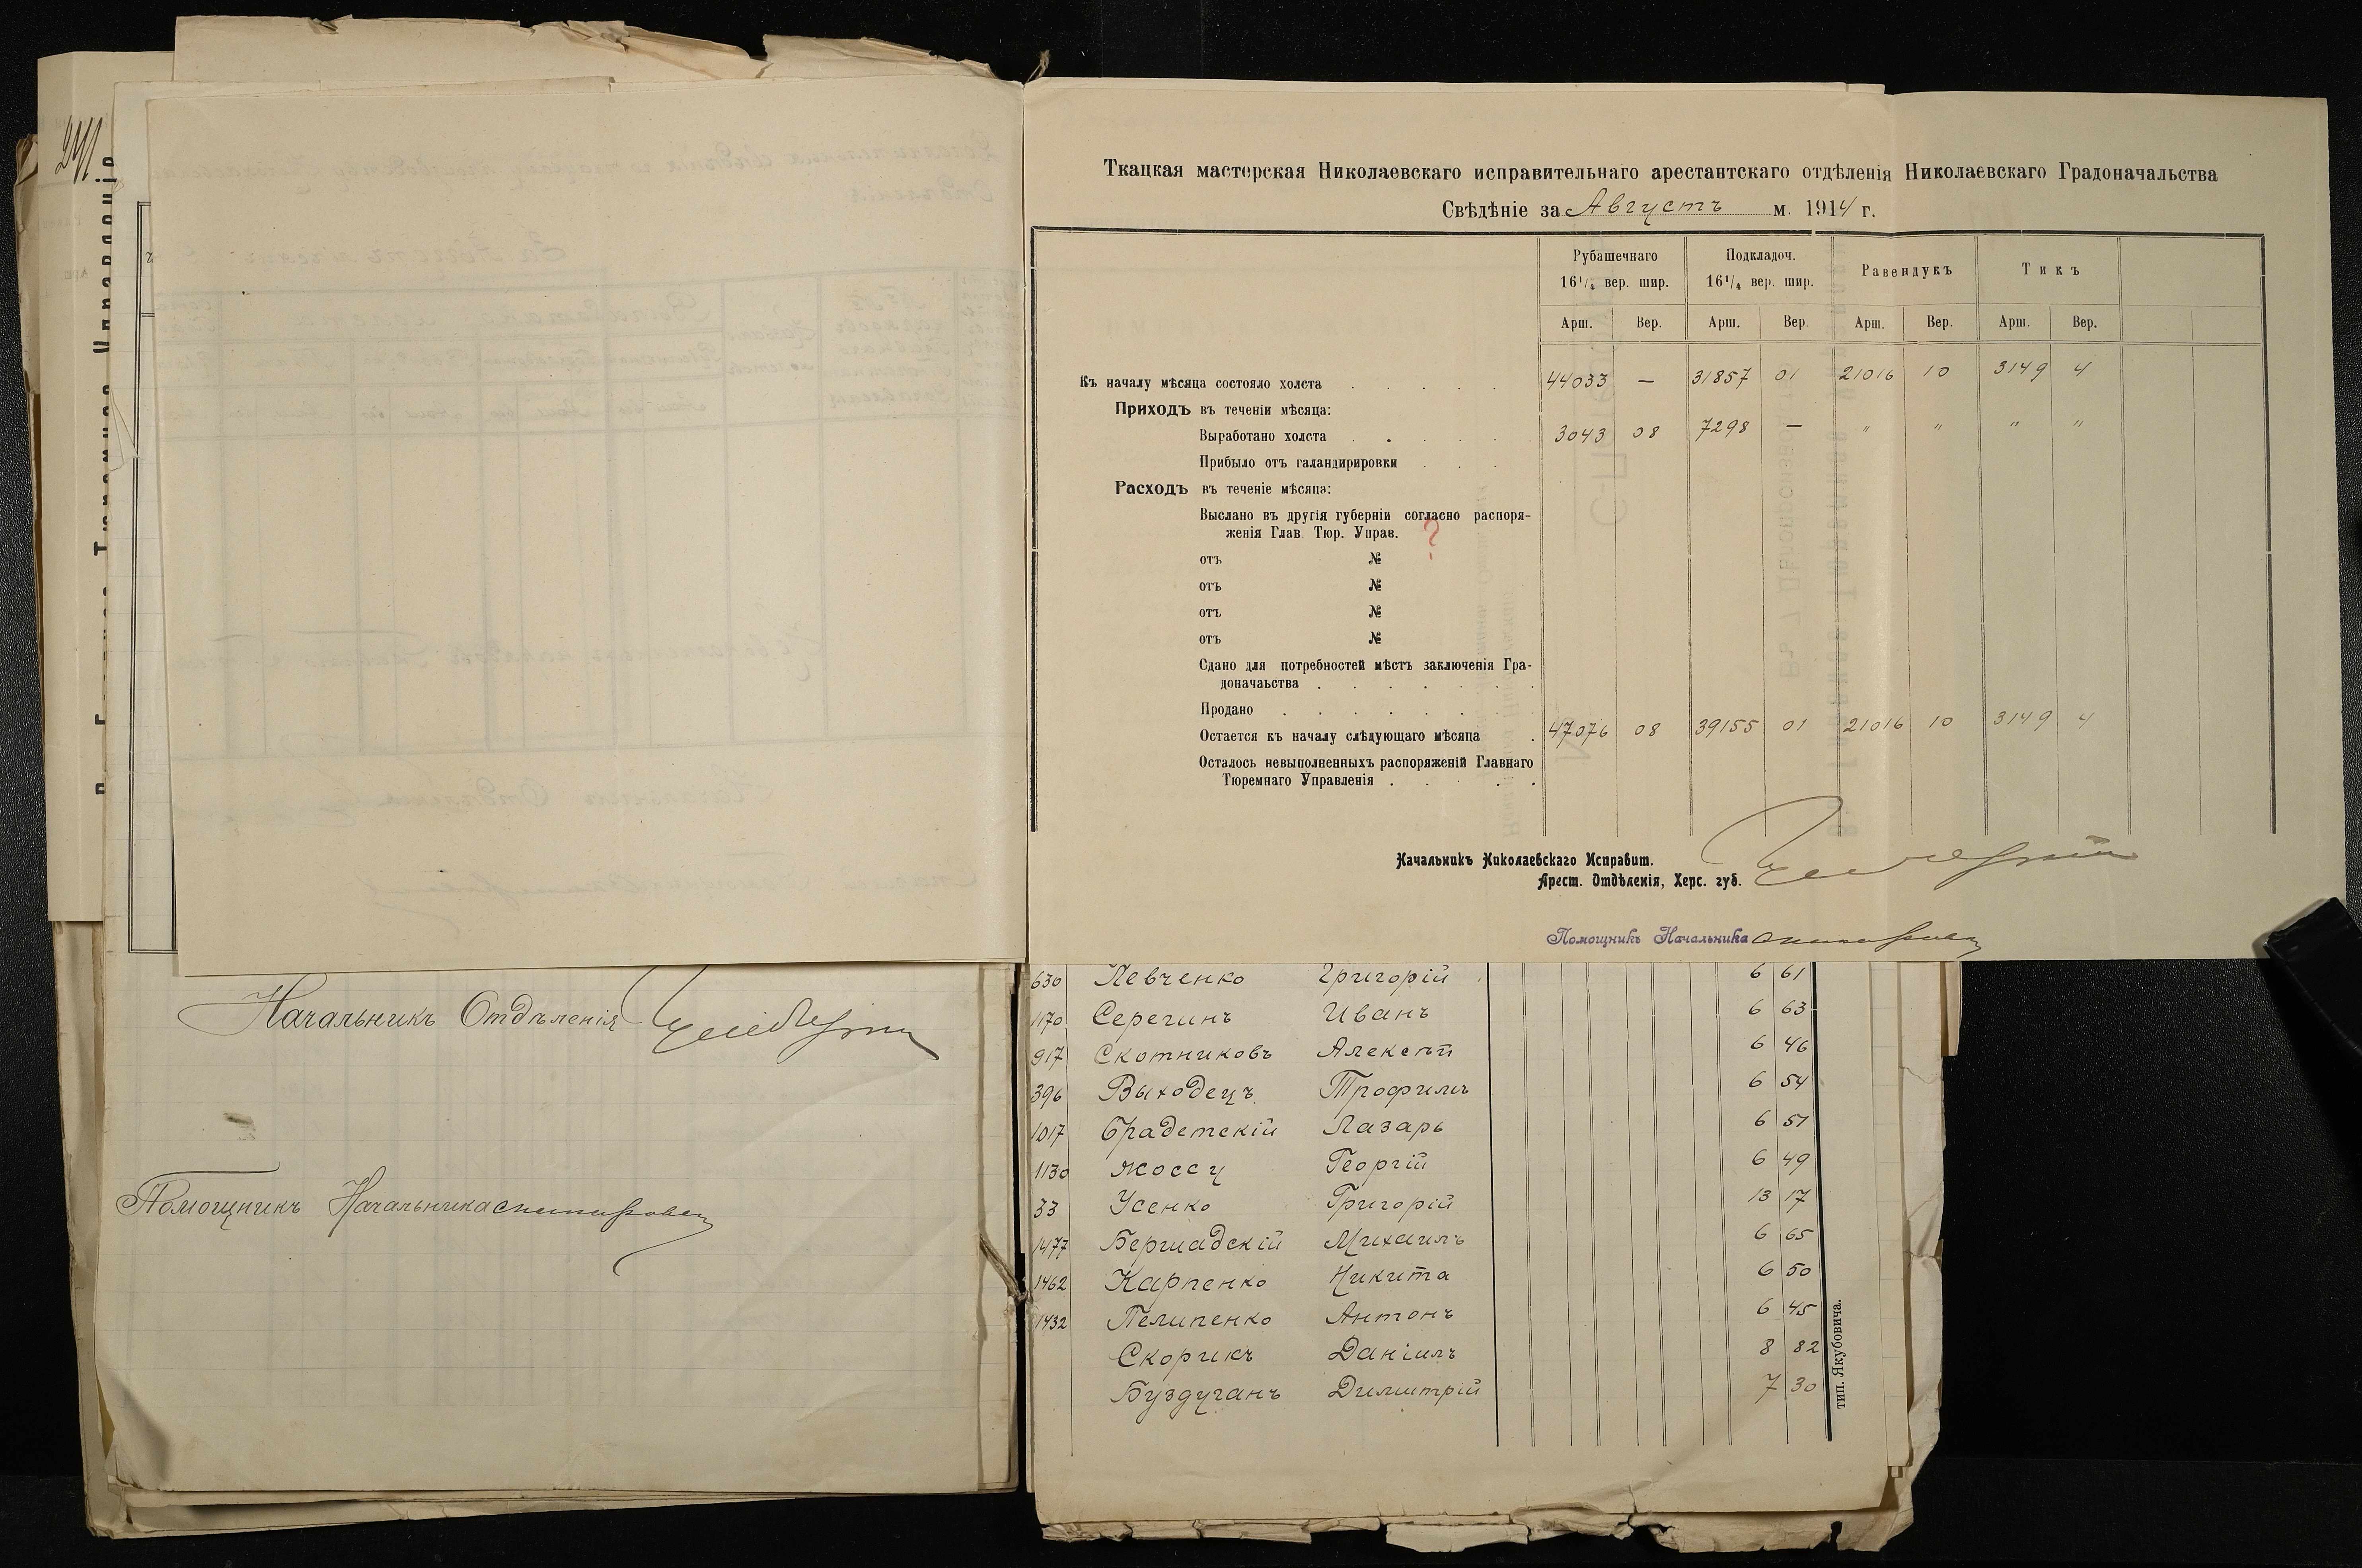 241
Начальникъ Отдѣленія
Помощникъ Начальника
Ткацкая мастерская Николаевскаго исправительнаго арестантскаго отдѣленія Николаевскаго Градоначальства
Свѣдѣніе за Августъ м. 1914 г.
Рубашечнаго 16¹/₄ вер. шир. Подкладоч. 16¹/₄ вер. шир. Равендукъ Тикъ
Арш. Вер. Арш. Вер. Арш. Вер. Арш. Вер.
Къ началу мѣсяца состояло холста . . . . . 44033 — 31857 01 21016 10 3149 4
Приходъ въ теченіи мѣсяца:
Выработано холста . . . . . 3043 08 7298 — " " " "
Прибыло отъ галандирировки . . .
Расходъ въ теченіе мѣсяца:
Выслано въ другія губерніи согласно распоря-
женія Глав. Тюр. Управ. ?
отъ №
отъ №
отъ №
отъ №
Сдано для потребностей мѣстъ заключенія Гра-
доначаьства . . . . . . .
Продано . . . . . . .
Остается къ началу слѣдующаго мѣсяца . 47076 08 39155 01 21016 10 3149 4
Осталось невыполненныхъ распоряженій Главнаго
Тюремнаго Управленія . . . .
Начальникъ Николаевскаго Исправит.
Арест. Отдѣленія, Херс. губ.
Помощникъ Начальника
630 Левченко Григорій 6 61
1170 Серегинъ Иванъ 6 63
917 Скотниковъ Алексѣй 6 46
396 Выходецъ Трофимъ 6 54
1017 Градетскій Лазарь 6 51
1130 Жоссу Георгій 6 49
33 Усенко Григорій 13 17
1477 Бершадскій Михаилъ 6 65
1462 Карпенко Никита 6 50
1432 Пелипенко Антонъ 6 45
Скорикъ Даніилъ 8 82
Буздуганъ Димитрій 7 30
тип. Якубовича.